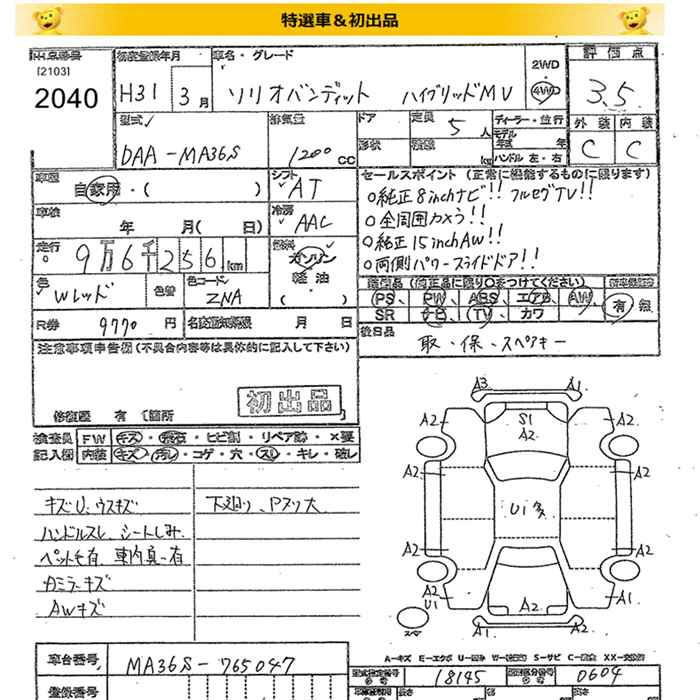 特選車＆初出品
出品番号
[2103]
2040
初度登録年月
H31 3月
車名・グレード
ソリオバンディット ハイブリッドMV
2WD
4WD
評価点
3.5
型式
DAA-MA36S
排気量
1200cc
ドア
形状
定員
5人
積載
kg
ディーラー・並行
モデル
年式 年
ハンドル 左・右
外装 内装
C C
車歴
自家用・( )
シフト
AT
車検
年 月( 日)
冷房
AAC
走行
9万6千256km
燃料
ガソリン
軽油
( )
色
Wレッド
色替
色コード
ZNA
R券
9770円
名変期限
月 日
セールスポイント (正常に機能するものに限ります)
○純正8inchナビ!! フルセグTV!!
○全周囲カメラ!!
○純正15inchAW!!
○両側パワースライドドア!!
装備品 (純正品に限り○をつけてください)
PS、PW、ABS、エアB、AW、
SR ナビ TV カワ
有 無
後日品
取・保・スペアキー
注意事項申告欄 (不具合内容等は具体的に記入して下さい)
初出品
修復歴 有 (箇所
検査員 FW キズ・飛石・ヒビ割・リペア跡・×要
記入欄 内装 キズ・汚レ・コゲ・穴・スレ・キレ・破レ
キズU、ウスキズ
下廻り、Pスリ大
ハンドルスレ、シートしみ
ペット毛有、車内臭い有
カミラーキズ
AWキズ
A3 A1
A2 S1 A2
A2
A2 A2
U1多
A2 A2
A2 U1 A2 A1
スペア
A1 A2
A-キズ E-エクボ U-凹み W-波打ち S-サビ C-腐食 XX-交換済
車台番号
MA36S-765047
型式指定番号
18145
類別区分番号
0604
登録番号
長さ 幅 高さ